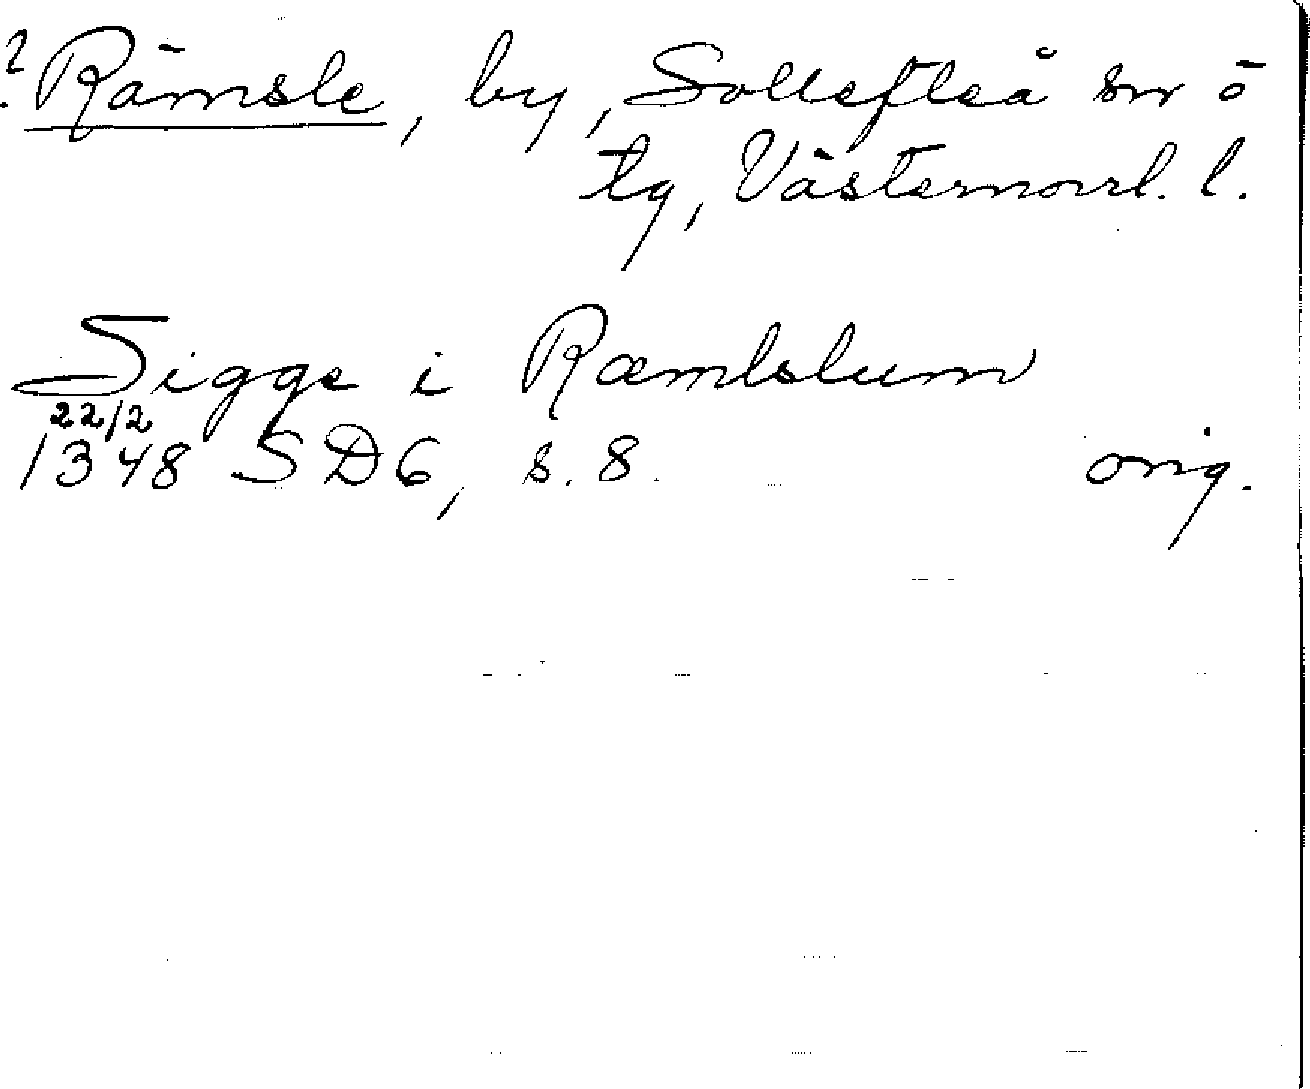 ? Rämsle, by, Sollefteå sn o
tg, Västernorrl. l.
Sigge i Ræmlslum
22/2
1348 SD6, s. 8. orig.